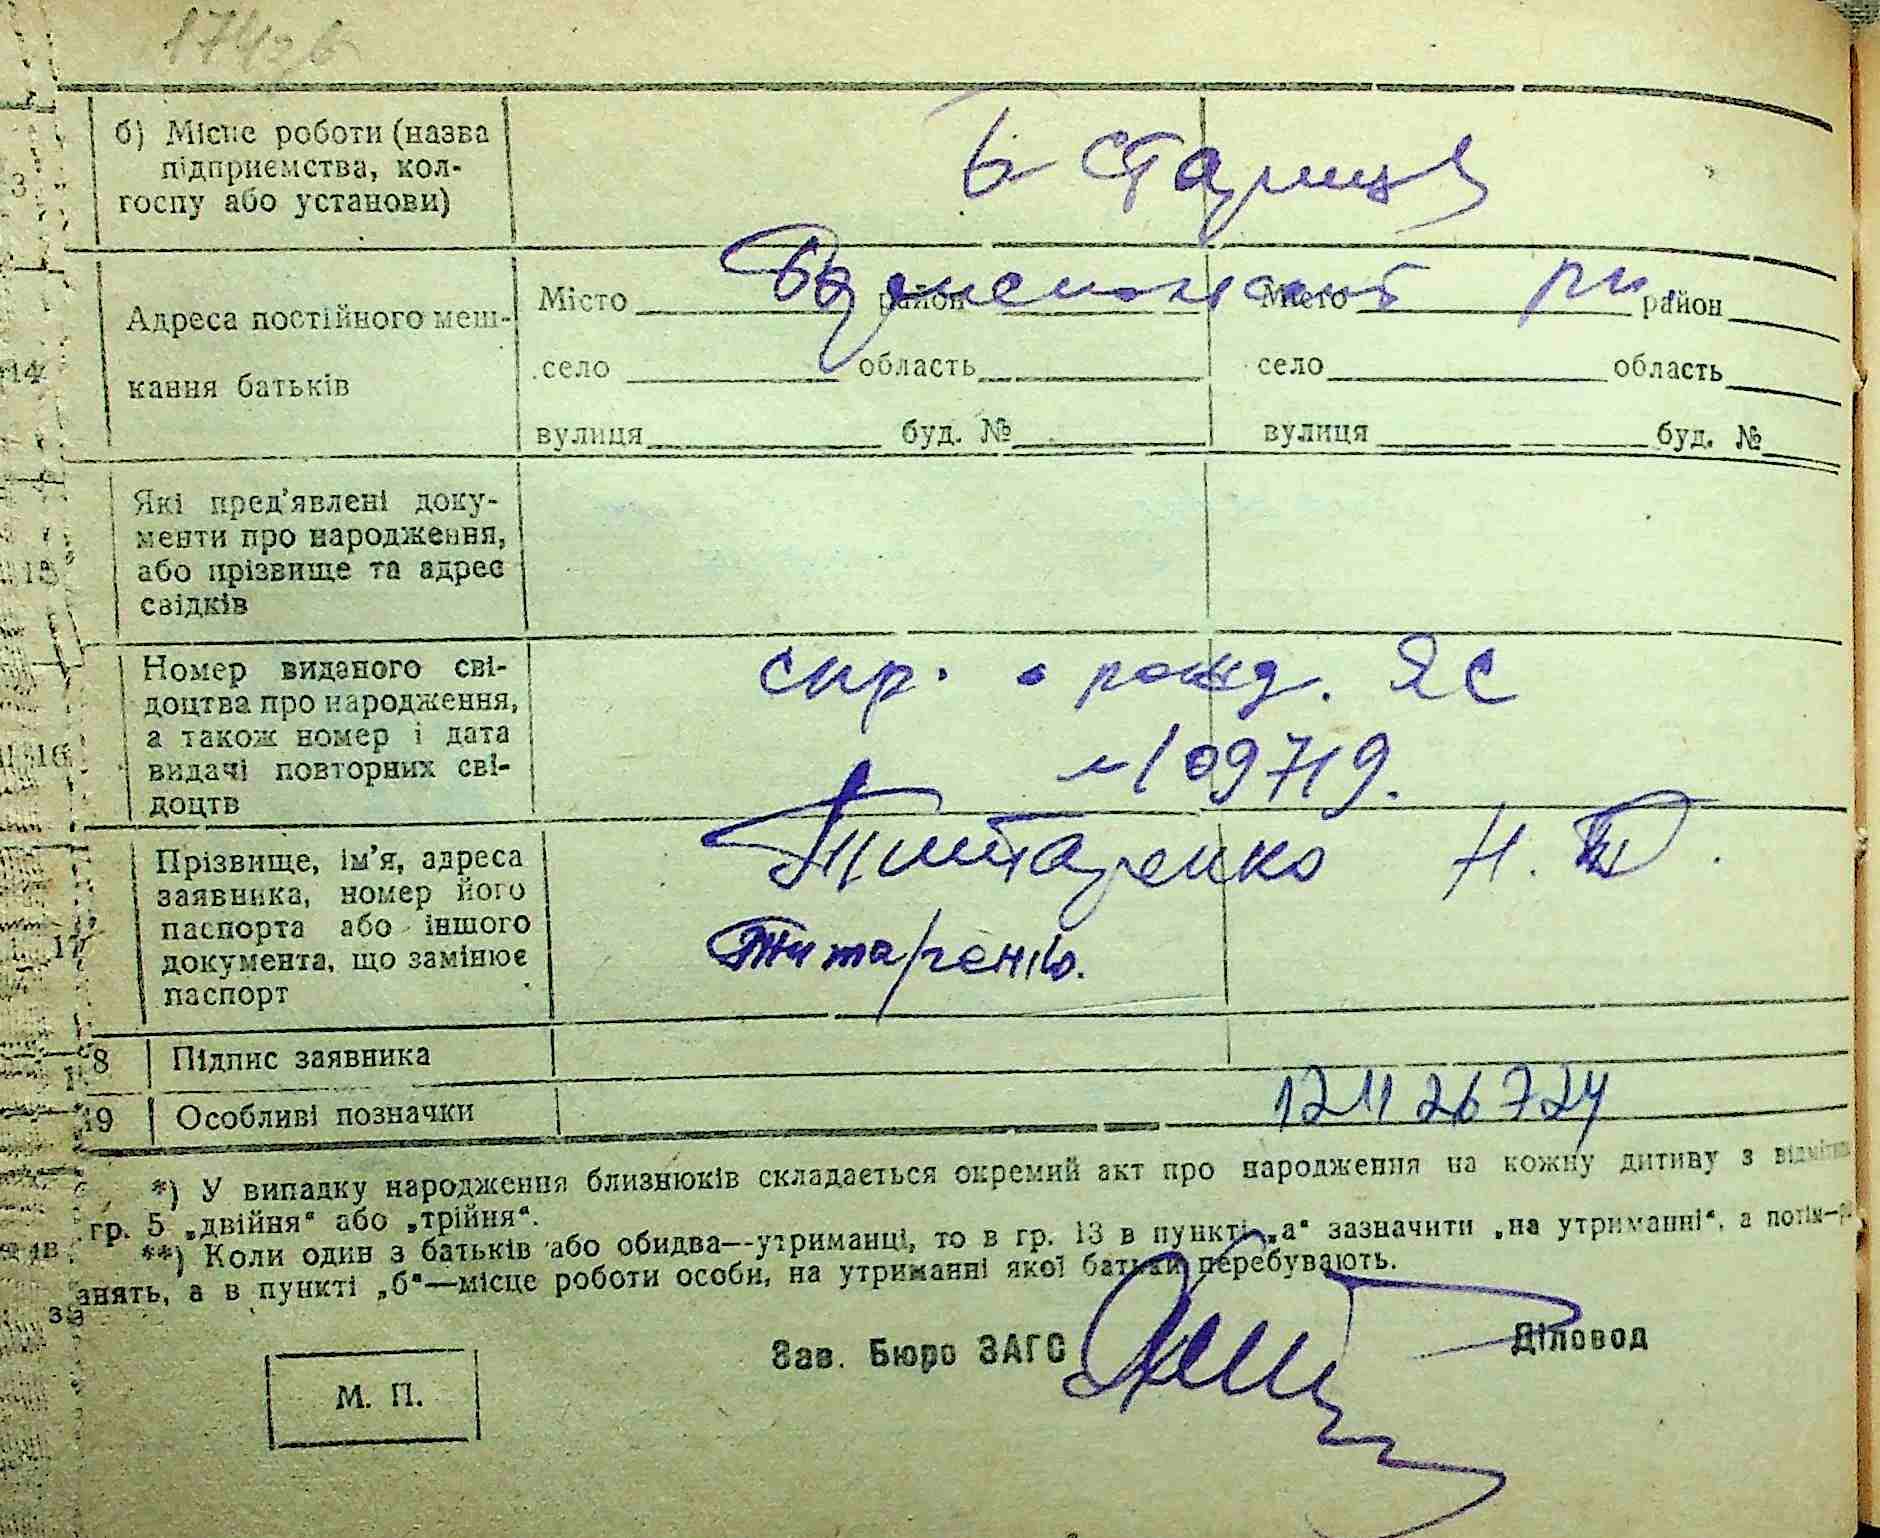 б) Місце роботи (назва
підприємства, кол-
госпу або установи)
Старица
14
Адреса постійного меш-
кання батьків
Місто район Місто рн. район
село область село область
вулиця буд. № вулиця буд. №
15
Які пред'явлені доку-
менти про народження,
або прізвище та адрес
свідків
16
Номер виданого сві-
доцтва про народження,
а також номер і дата
видачі повторних сві-
доцтв
спр. о рожд. ЯС
№ 109719.
17
Прізвище, ім'я, адреса
заявника, номер його
паспорта або іншого
документа, що замінює
паспорт
Титаренко Н. Т.
Титаренко.
18 Підпис заявника
19 Особливі позначки
*) У випадку народження близнюків складається окремий акт про народження на кожну дитину з відміткою
гр. 5 „двійня“ або „трійня“.
**) Коли один з батьків або обидва—утриманці, то в гр. 13 в пункті „а“ зазначити „на утриманні“, а потім—
знять, а в пункті „б“—місце роботи особи, на утриманні якої батьки перебувають.
Зав. Бюро ЗАГС Діловод
М. П.